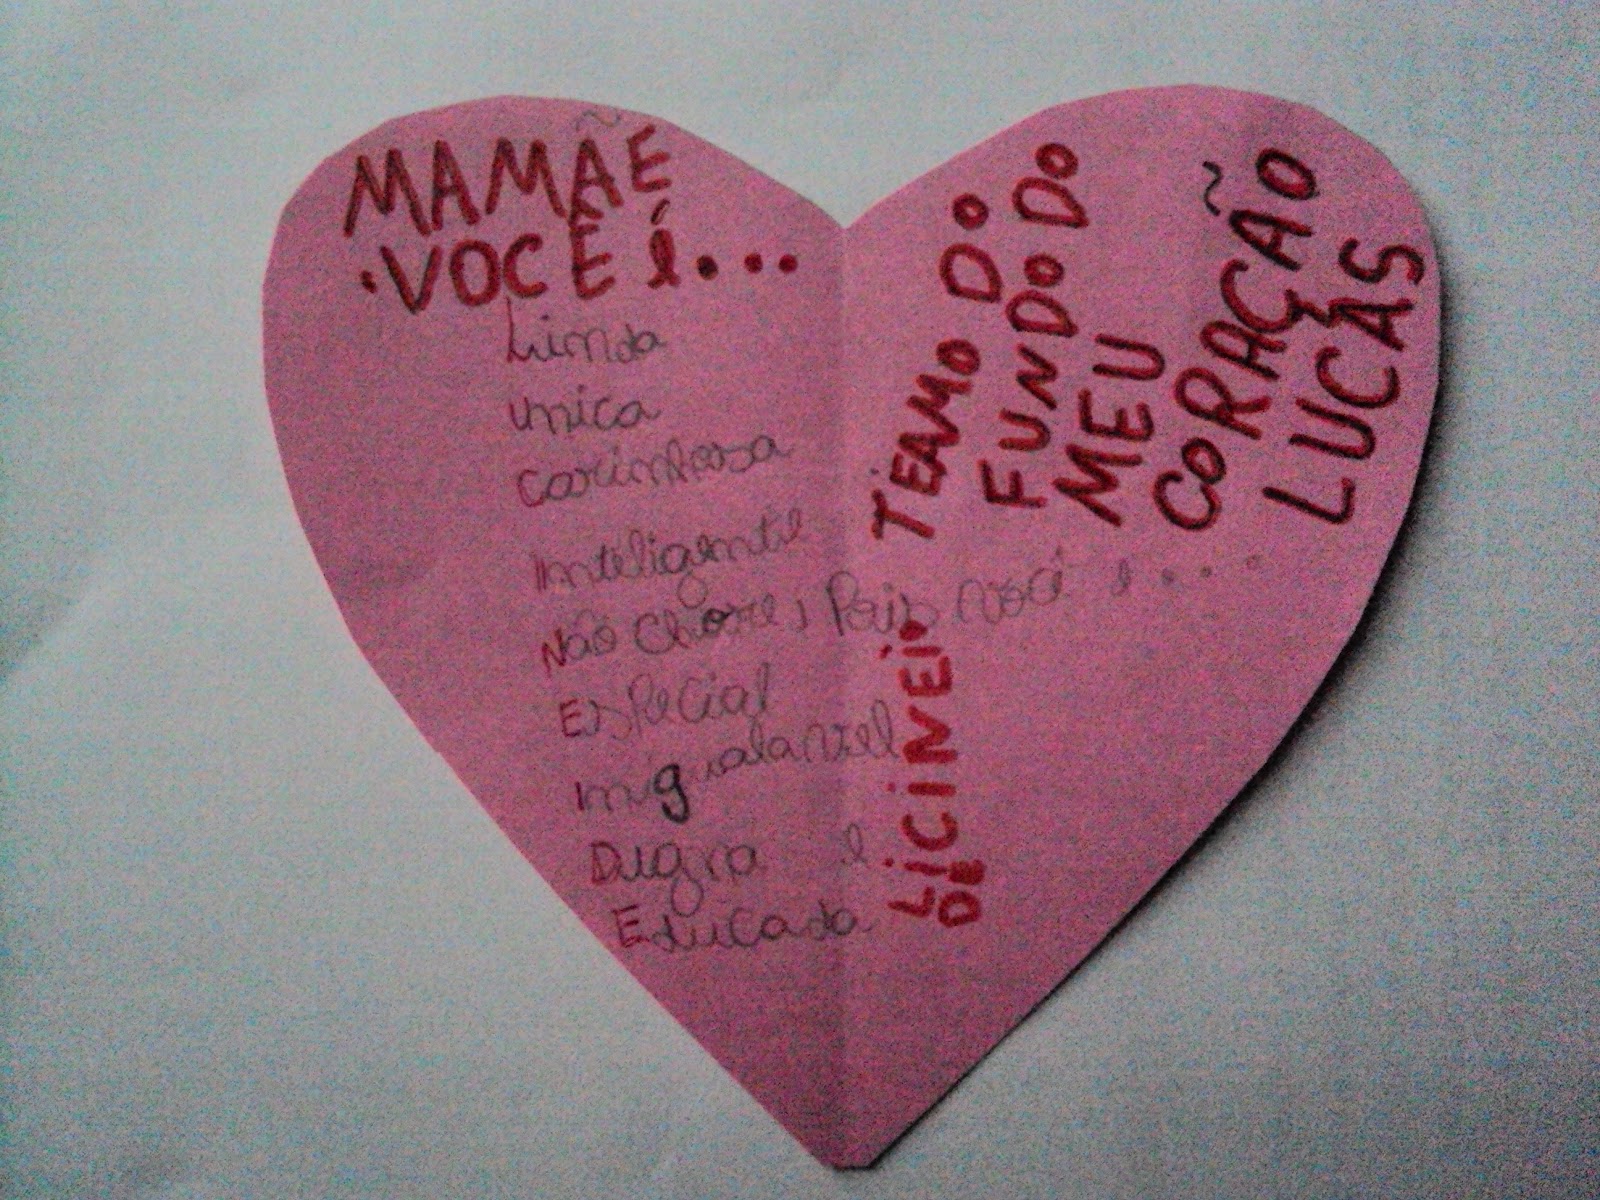 MAMÃE
VOCÊ É...
Linda
unica
carinhosa
Inteligente
Não chore, Pois você é...
Especial
Inigualavel
Digna e
Educada
TEAMO DO
FUNDO DO
MEU
CORAÇÃO
LUCAS
DE
LICINEIO